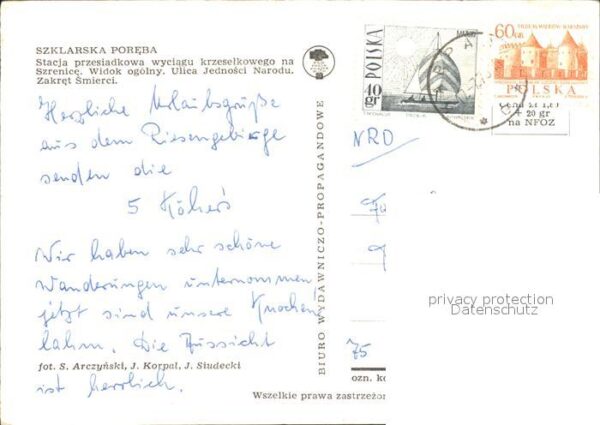 SZKLARSKA PORĘBA
Stacja przesiadkowa wyciągu krzesełkowego na
Szrenicę. Widok ogólny. Ulica Jedności Narodu.
Zakręt Śmierci.
Herzliche Urlaubsgrüße
aus dem Riesengebirge
senden die
5 Köhers
Wir haben sehr schöne
Wanderungen unternommen,
jetzt sind unsere Knochen
lahm. Die Aussicht
fot. S. Arczyński, J. Korpal, J. Siudecki
ist herrlich.
BIURO WYDAWNICZO-PROPAGANDOWE
POLSKA
40
gr
60
gr
POLSKA
Cena zł 1,25
+ 20 gr
na NFOZ
NRD
privacy protection
Datenschutz
75
ozn. ko
Wszelkie prawa zastrzeżon